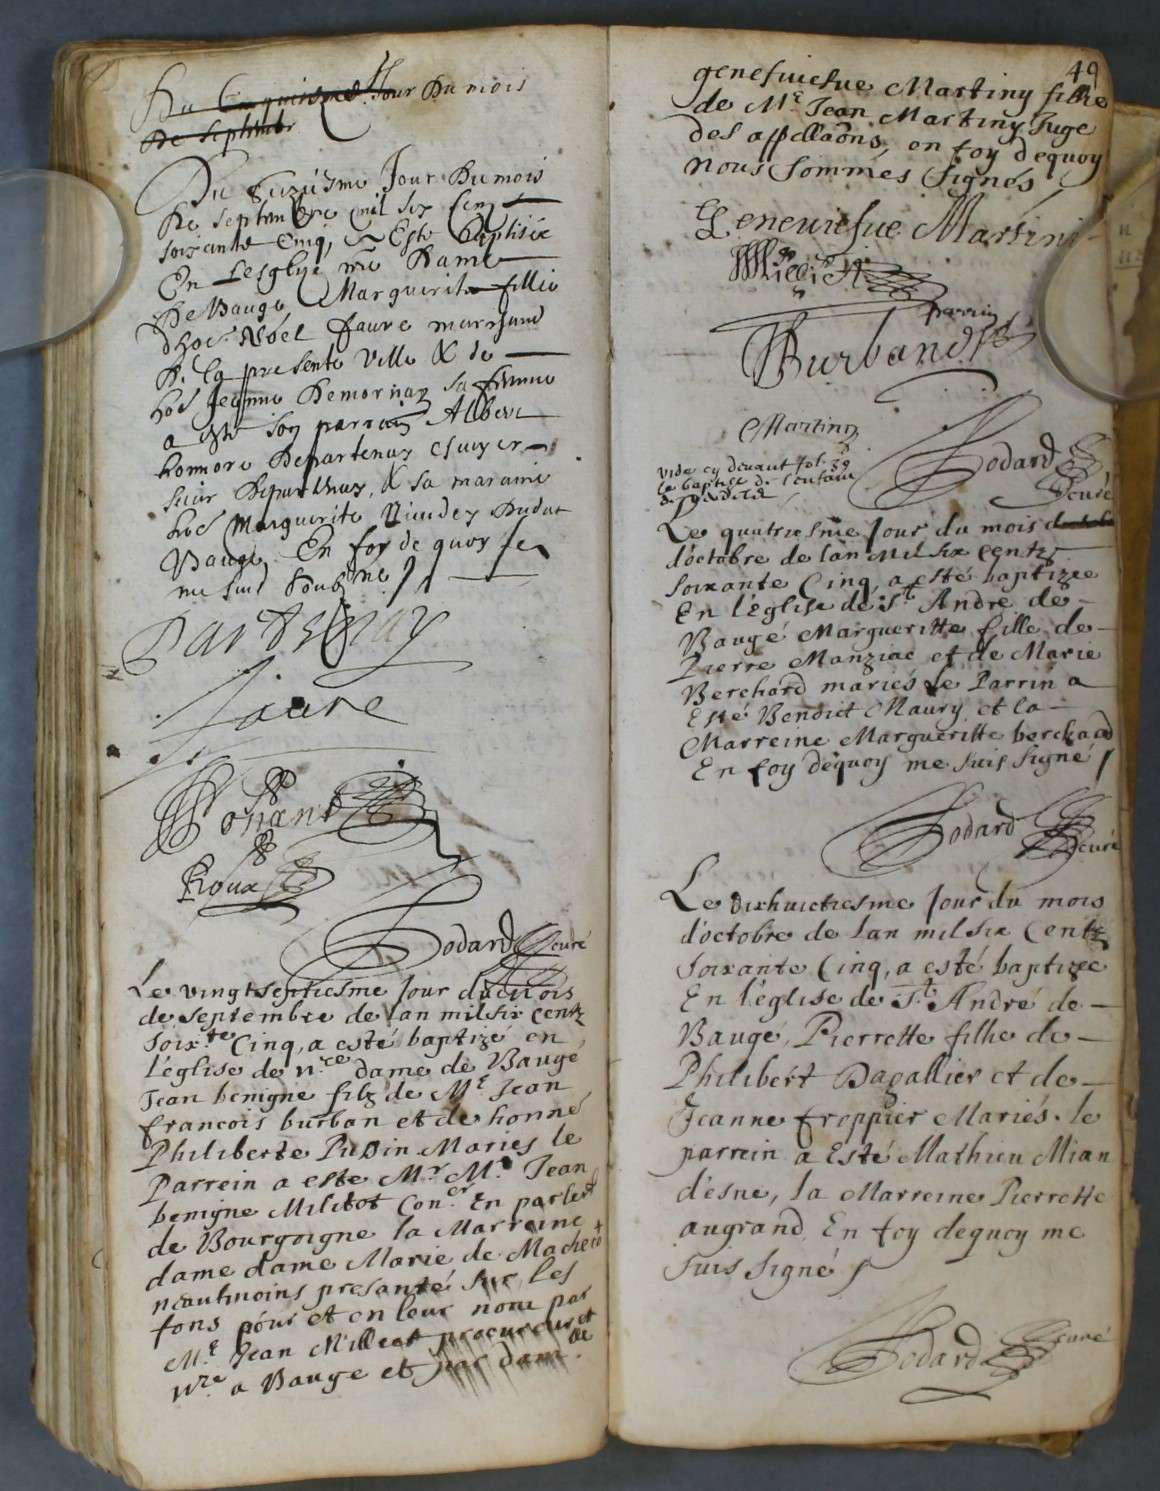 Du Jour Du mois
De Septembre
Du Seziesme Jour Du mois
De Septembre mil six Cens
soixante Cinq, Este Baptisée
En Lesglise nre Dame
De Baugé Marguerite fillie
d'hoe Noel faure marchand
De la presente Ville & de
hoe Jeanne Demornay sa femme
a este son parrain Albert
honnore Departenay esuyer
sieur Departenay, & sa maraine
hoe Marguerite Dudut
Baugé En foy de quoy Je
me suis soubsne
Partenay
faure
Roux
Bodard curé
Le vingtseptiesme Jour du mois
de septembre de lan mil six centz
soix.te Cinq, a esté baptizé en
l'église de n.re dame de Baugé
Jean benigne filz de M.e Jean
francois burban et de honne
Philiberte Pudin Mariés le
Parrein a este M.r M.e Jean
benigne Militot Con.er En parlem.t
de Bourgoigne la Marreine
dame dame Marie de Macheco
neautmoins presanté sur les
fons pour et en leur nom par
M.e Jean Milleet procureur et
n.re a Baugé et par dam.lle
49
genefuiefue Martiny filhe
de M.e Jean Martiny Juge
des appellaōns, en foy dequoy
Nous Sommes signés
Geneuiefue Martini
Milliet
Burband
Martiny
vide cy deuant fol. 39
le baptise de
Bodard
Curé
Le quatriesme Jour du mois octobre
d'octobre de lan Mil six centz
Soixante Cinq, a esté baptizee
En l'Eglise de S.t André de
Baugé Margueritte fille de
Pierre Manziac et de Marie
Berchard mariés Le Parrin a
Esté Benoict Maury et la
Marreine Margueritte berchard
En foy dequoy me suis signé
Bodard curé
Le dixhuictiesme Jour du mois
d'octobre de lan mil six Centz
Soixante Cinq, a esté baptizee
En l'église de S.t André de
Baugé, Pierrette filhe de
Philibert Dagallier et de
Jeanne froppier Mariés. le
parrein a Esté Mathieu Mian
d'esne, la Marreine Pierrette
augrand En foy dequoy me
suis signé
Bodard curé